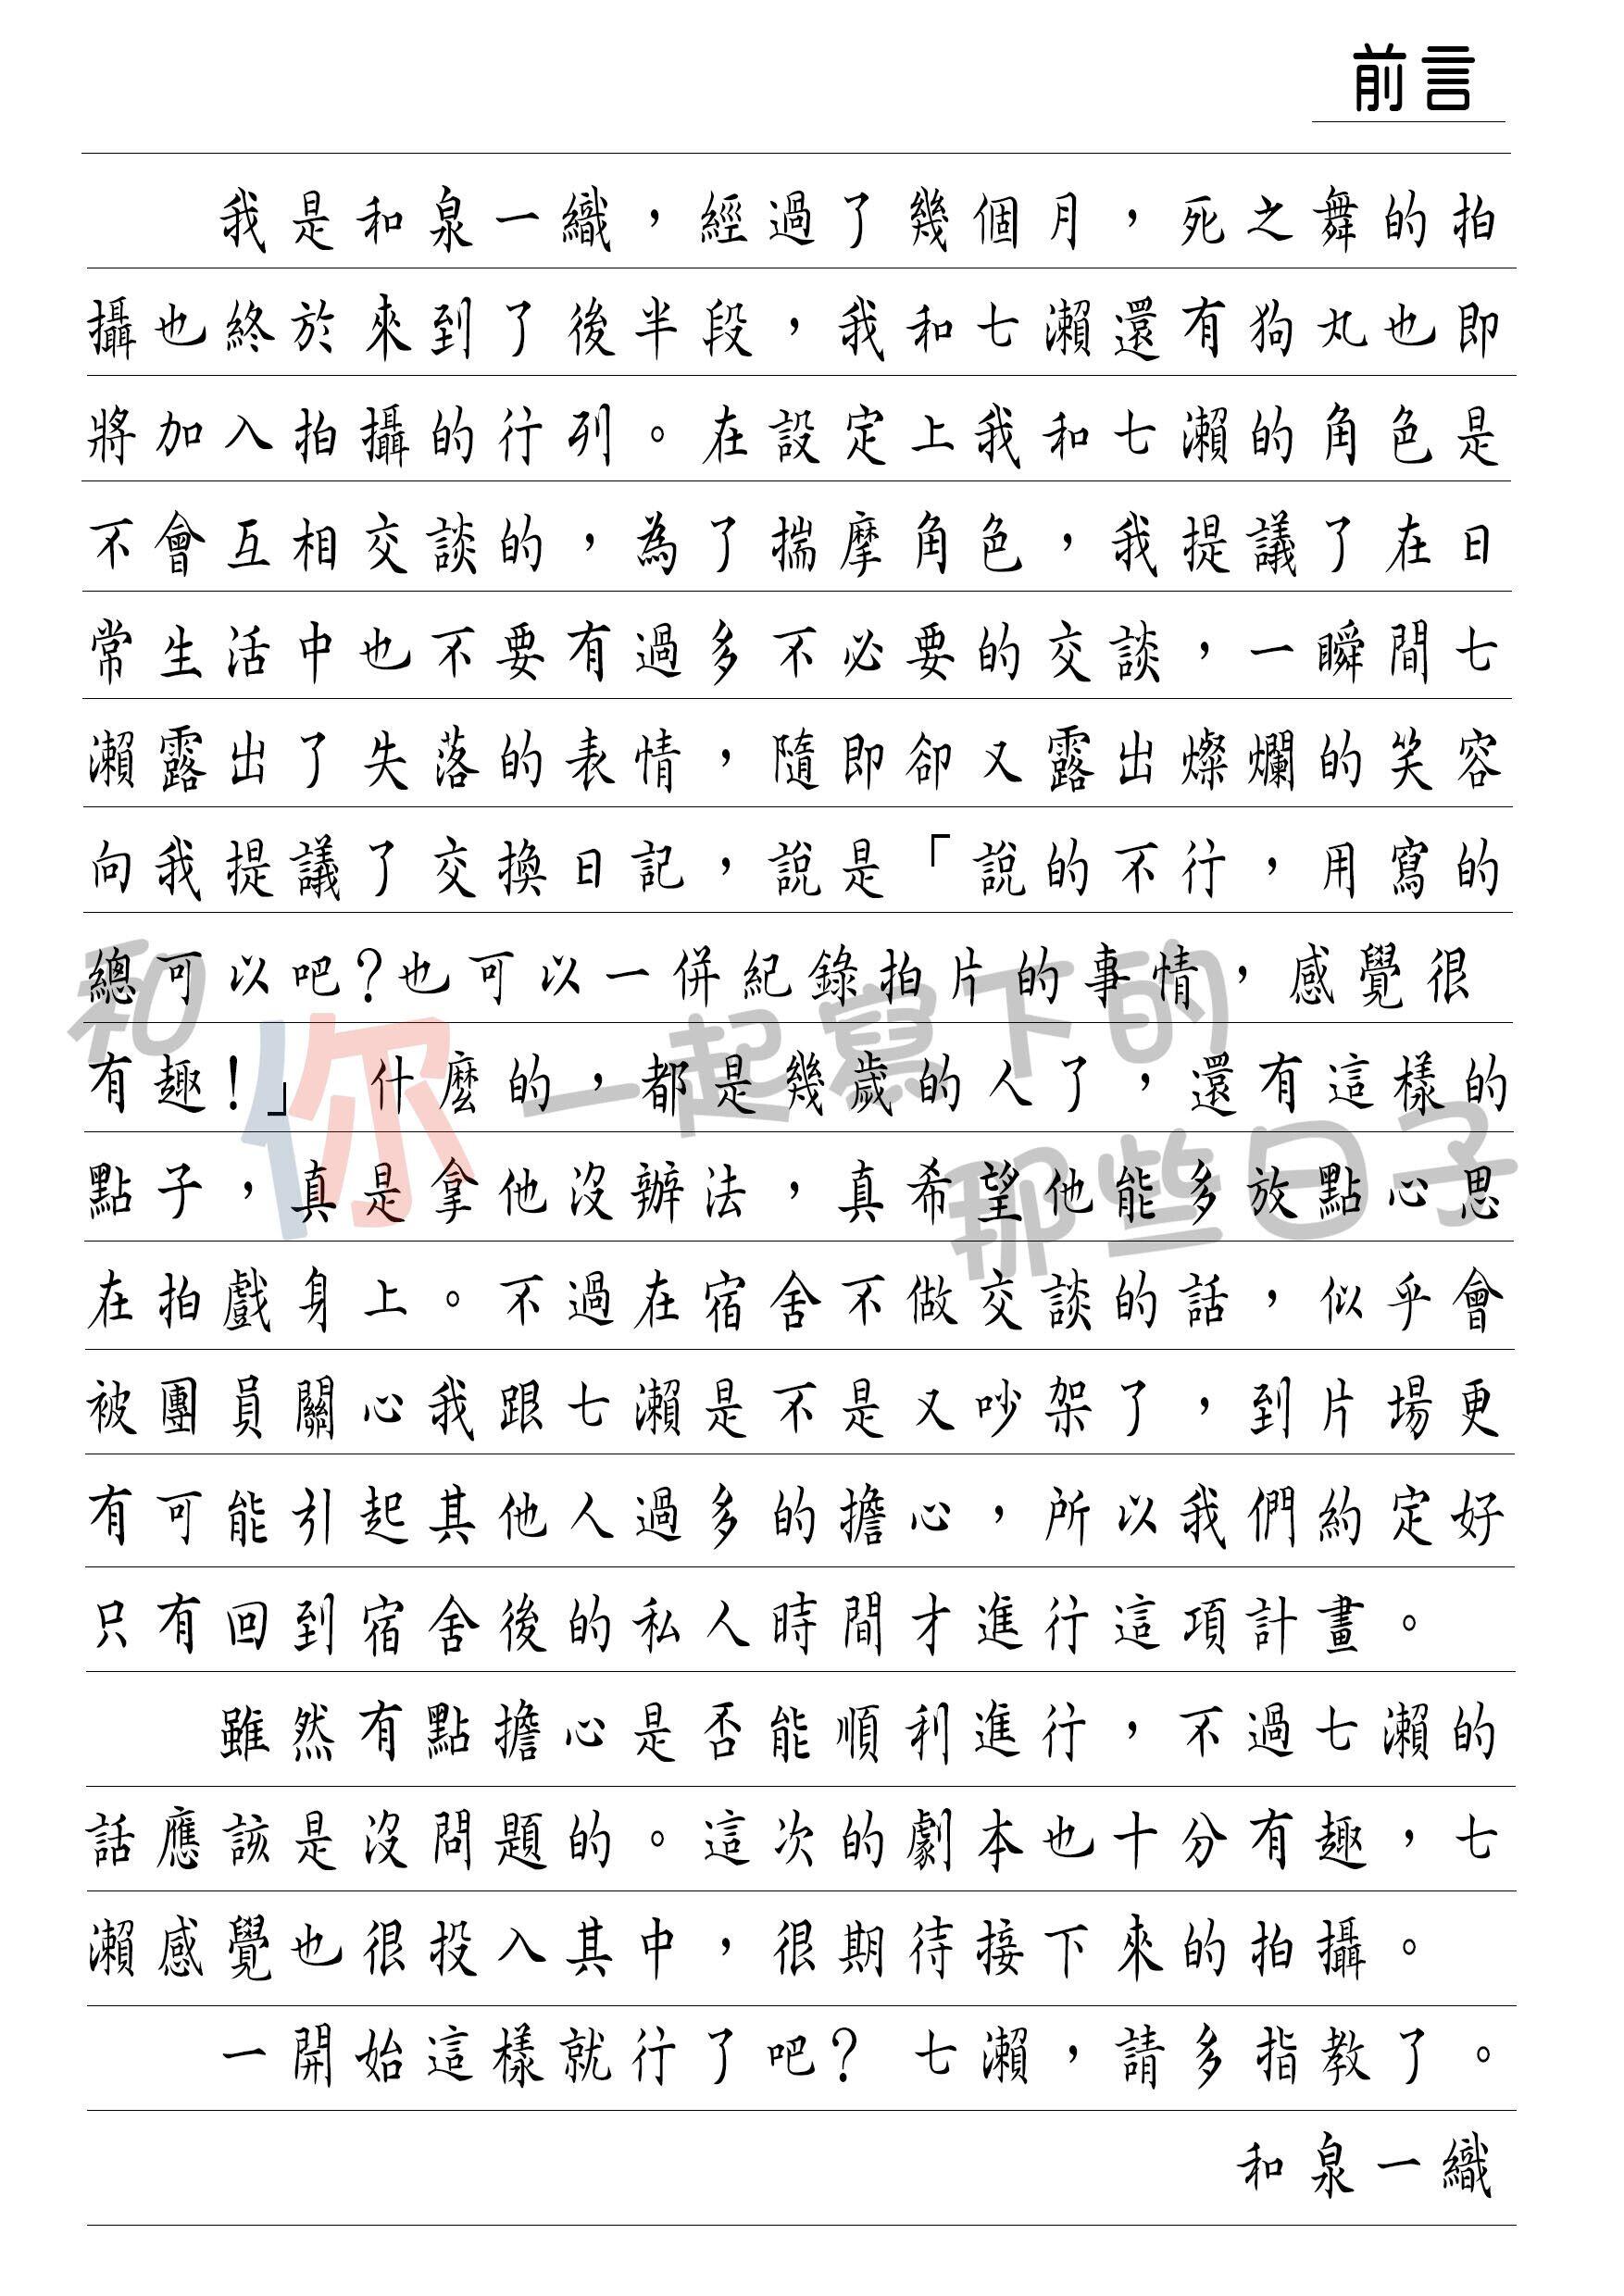 前言
我是和泉一織，經過了幾個月，死之舞的拍
攝也終於來到了後半段，我和七瀨還有狗丸也即
將加入拍攝的行列。在設定上我和七瀨的角色是
不會互相交談的，為了揣摩角色，我提議了在日
常生活中也不要有過多不必要的交談，一瞬間七
瀨露出了失落的表情，隨即卻又露出燦爛的笑容
向我提議了交換日記，說是「說的不行，用寫的
總可以吧？也可以一併紀錄拍片的事情，感覺很
有趣！」 什麼的，都是幾歲的人了，還有這樣的
點子，真是拿他沒辦法，真希望他能多放點心思
在拍戲身上。不過在宿舍不做交談的話，似乎會
被團員關心我跟七瀨是不是又吵架了，到片場更
有可能引起其他人過多的擔心，所以我們約定好
只有回到宿舍後的私人時間才進行這項計畫。
雖然有點擔心是否能順利進行，不過七瀨的
話應該是沒問題的。這次的劇本也十分有趣，七
瀨感覺也很投入其中，很期待接下來的拍攝。
一開始這樣就行了吧？ 七瀨，請多指教了。
和泉一織
和你一起寫下的
那些日子